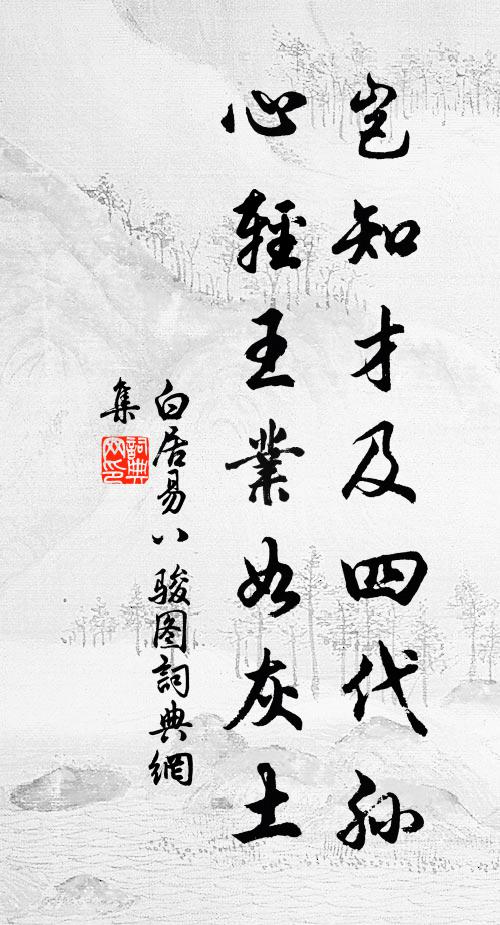 岂知才及四代孙
心轻王業如灰土
白居易八骏图詞典網
集
詞典网印